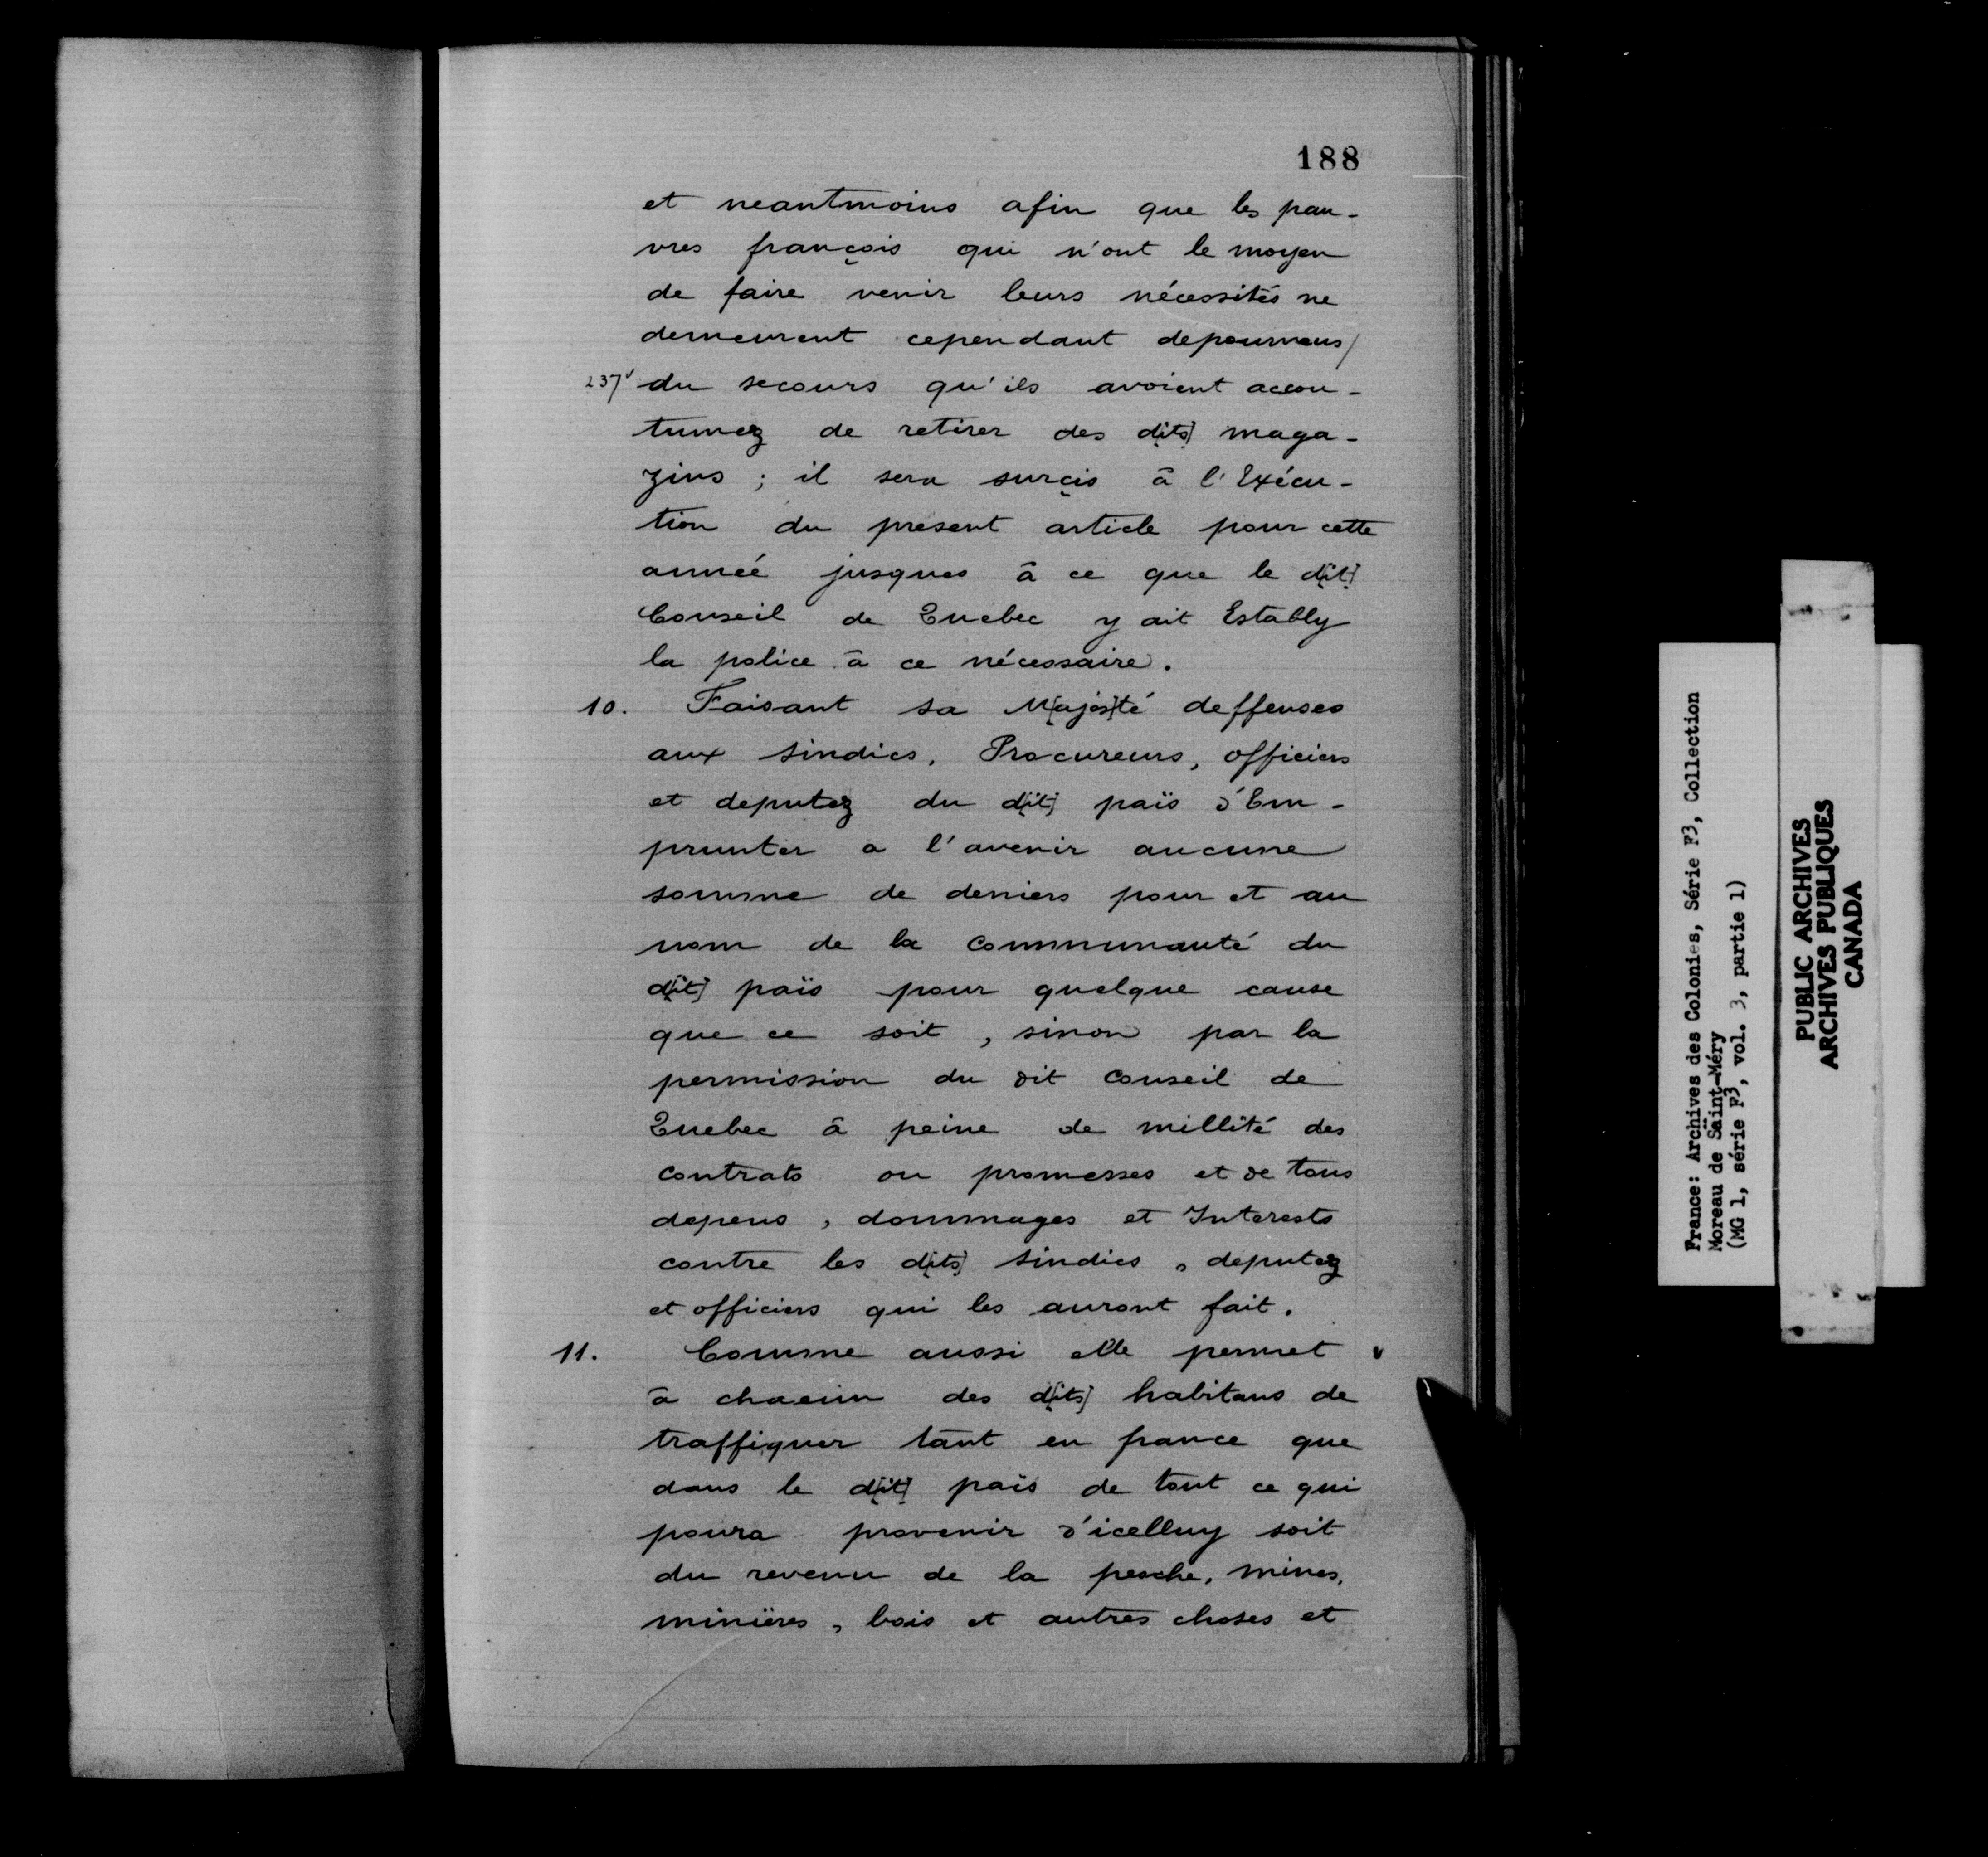 188
et neantmoins afin que les pau-
vres françois qui n'ont le moyen
de faire venir leurs nécessités ne
demeurent cependant depourveus/
237v du secours qu'ils avoient accou-
tumez de retirer des d[its] maga-
zins ; il sera surçis â l'Exécu-
tion du present article pour cette
année jusques â ce que le d[it]
Conseil de Quebec y ait Estably
la police â ce nécessaire.
10. Faisant sa M[ajes]té deffenses
aux sindics, Procureurs, officiers
et deputez du d[it] païs d'Em-
prunter a l'avenir aucune
somme de deniers pour et au
nom de la communauté du
d[it] païs pour quelque cause
que ce soit, sinon par la
permission du dit conseil de
Quebec â peine de nullité des
contrats ou promesses et de tous
depens, dommages et Interests
contre les d[its] sindics, deputez
et officiers qui les auront fait.
11. Comme aussi elle permet v
â chacun des d[its] habitans de
traffiquer tant en france que
dans le d[it] païs de tout ce qui
poura provenir d'icelluy soit
du revenu de la pesche, mines,
minieres, bois et autres choses et
France: Archives des Colonies, Série F3, Collection
Moreau de Saint-Méry
(MG 1, série F3, vol. 3, partie 1)
PUBLIC ARCHIVES
ARCHIVES PUBLIQUES
CANADA